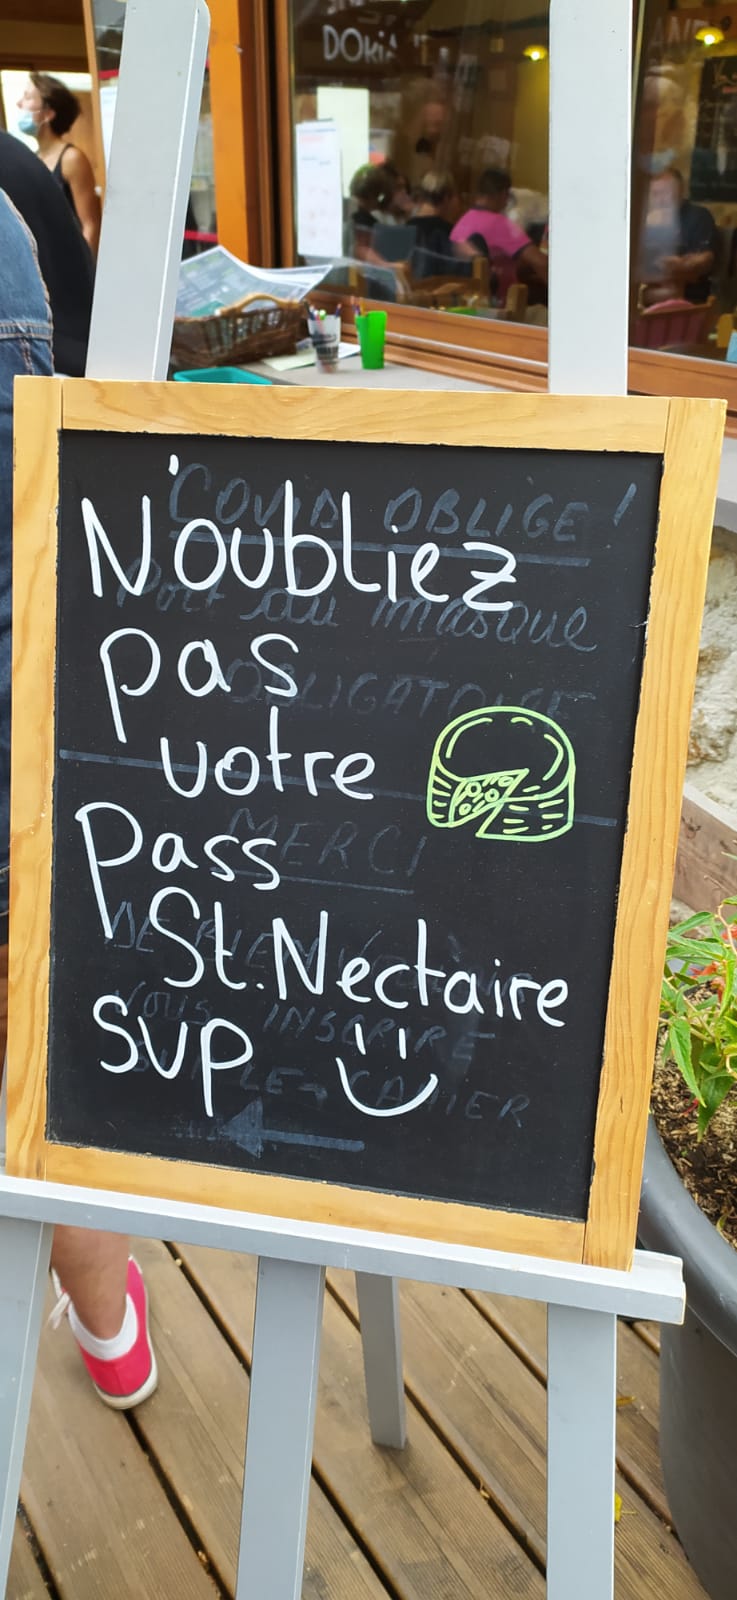 N'oubliez
pas
votre
Pass
St. Nectaire
SVP
COVID OBLIGE !
Port du masque
OBLIGATOIRE
MERCI
VOUS INSCRIRE
SUR LE CAHIER